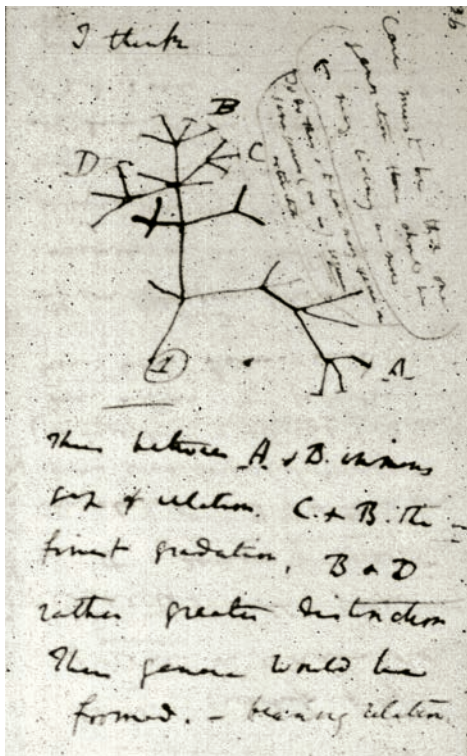 36
I think
Case must be that one
generation then should be
as many living as now
To do this & to have many species in
same genus (as is) requires
extinction
B
D
C
1
A
Thus between A & B. immens
gap of relation. C. & B. the
finest gradation, B & D
rather greater distinction
Thus genera would be
formed. — bearing relation